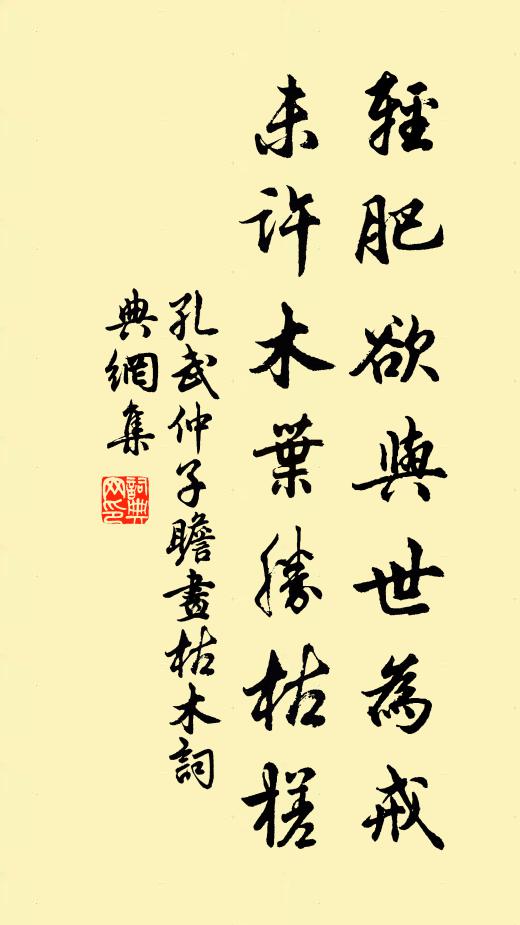 輕肥欲與世為戒
未許木葉勝枯槎
孔武仲子瞻畫枯木詞
典網集
詞典
网印